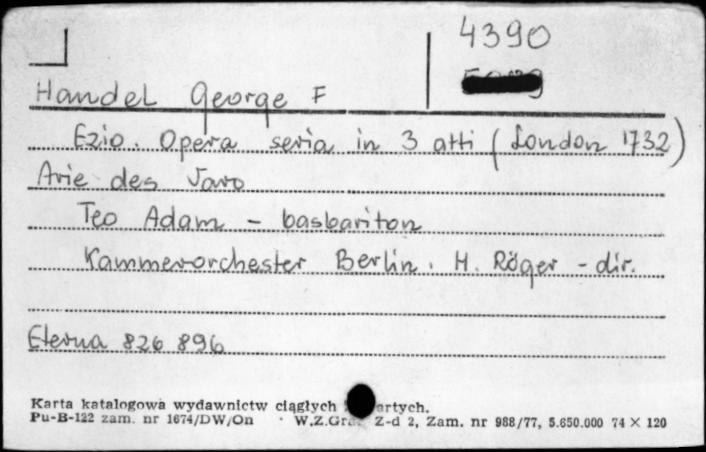 4390
Handel George F
Ezio. Opera seria in 3 atti (London 1732)
Arie des Varo
Teo Adam - basbariton
Kammerorchester Berlin. H. Röger - dir.
Eterna 826 896
Karta katalogowa wydawnictw ciągłych artych.
Pu-B-122 zam. nr 1674/DW/On W.Z.Graf. Z-d 2, Zam. nr 988/77, 5.650.000 74 × 120